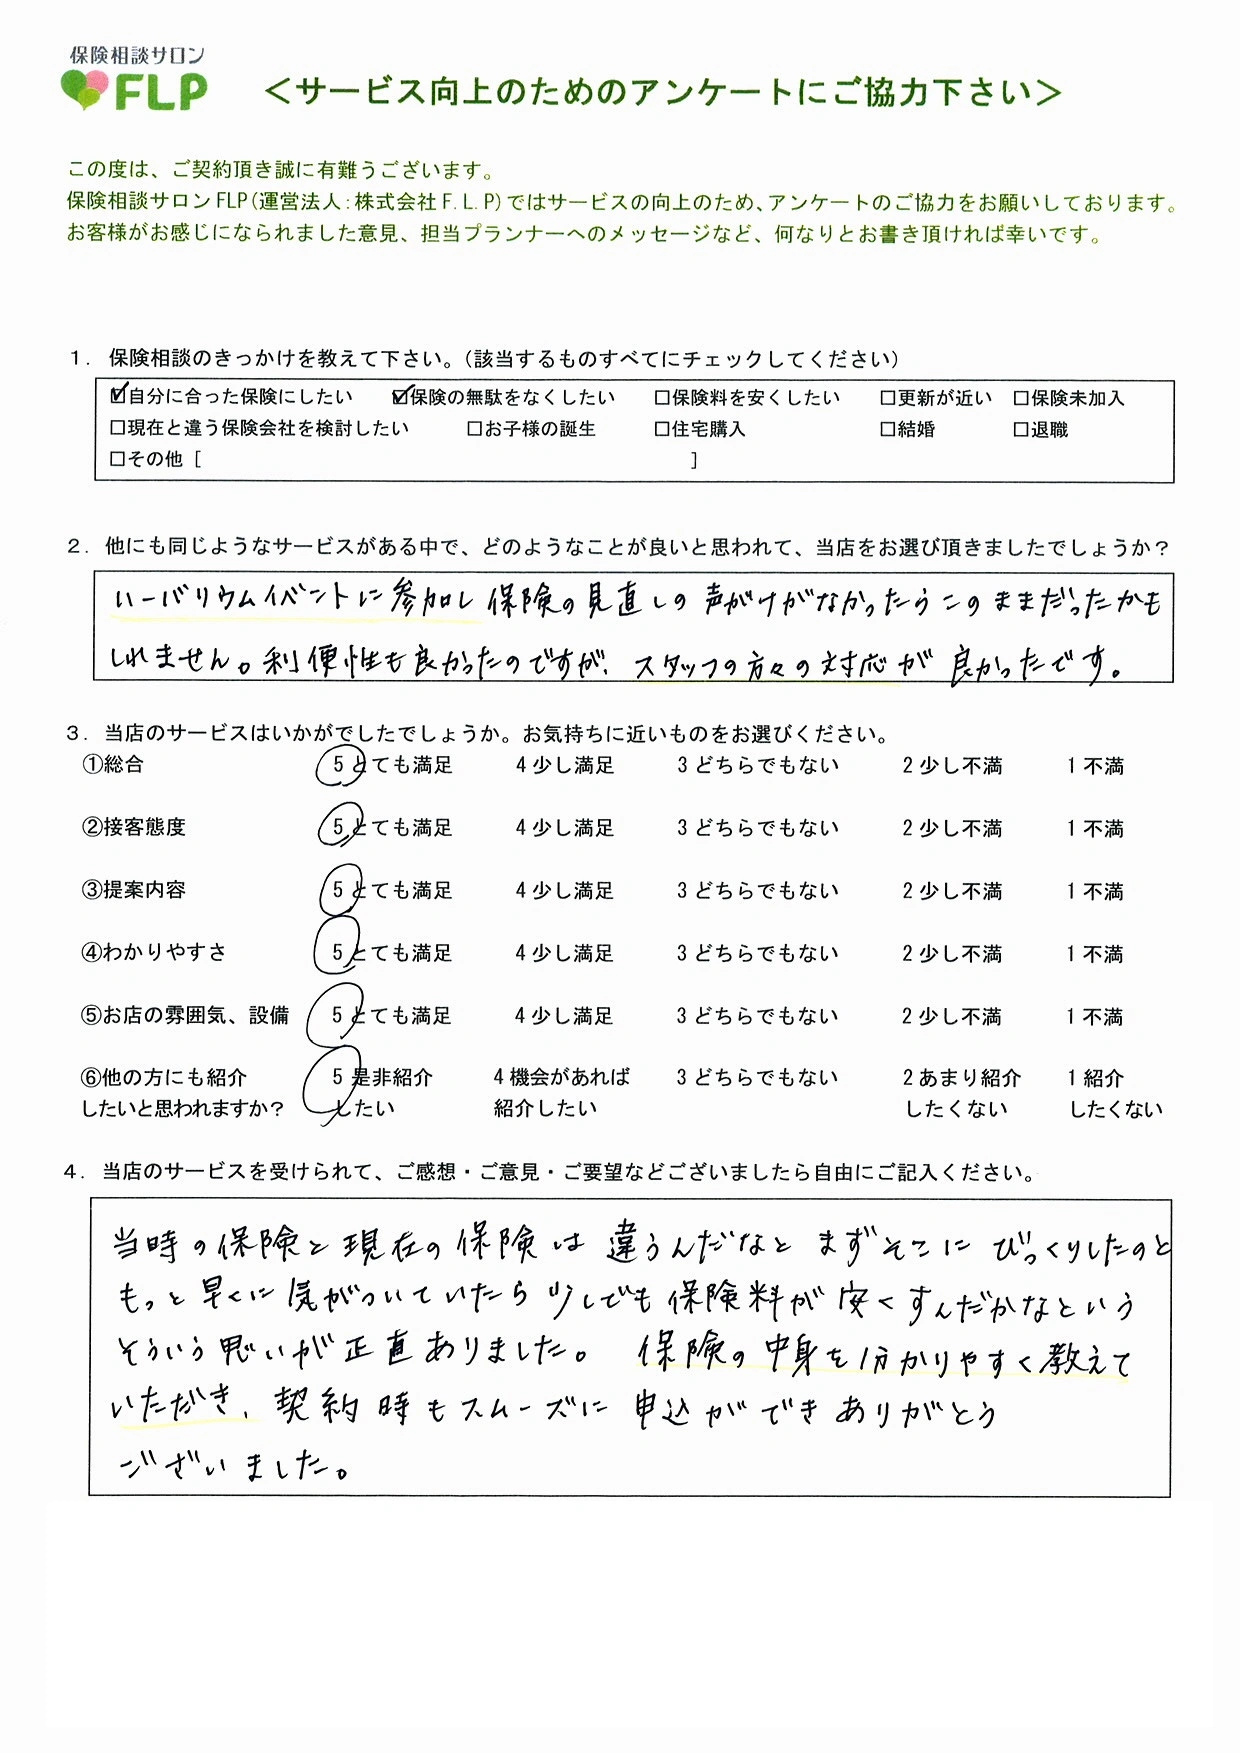 保険相談サロン
FLP
＜サービス向上のためのアンケートにご協力下さい＞
この度は、ご契約頂き誠に有難うございます。
保険相談サロンFLP(運営法人:株式会社F.L.P)ではサービスの向上のため、アンケートのご協力をお願いしております。
お客様がお感じになられました意見、担当プランナーへのメッセージなど、何なりとお書き頂ければ幸いです。
１．保険相談のきっかけを教えて下さい。(該当するものすべてにチェックしてください)
☑自分に合った保険にしたい ☑保険の無駄をなくしたい □保険料を安くしたい □更新が近い □保険未加入
□現在と違う保険会社を検討したい □お子様の誕生 □住宅購入 □結婚 □退職
□その他 [ ]
２．他にも同じようなサービスがある中で、どのようなことが良いと思われて、当店をお選び頂きましたでしょうか？
ハーバリウムイベントに参加し保険の見直しの声がけがなかったらこのままだったかも
しれません。利便性も良かったのですが、スタッフの方々の対応が良かったです。
３．当店のサービスはいかがでしたでしょうか。お気持ちに近いものをお選びください。
①総合 5 とても満足 4 少し満足 3 どちらでもない 2 少し不満 1 不満
②接客態度 5 とても満足 4 少し満足 3 どちらでもない 2 少し不満 1 不満
③提案内容 5 とても満足 4 少し満足 3 どちらでもない 2 少し不満 1 不満
④わかりやすさ 5 とても満足 4 少し満足 3 どちらでもない 2 少し不満 1 不満
⑤お店の雰囲気、設備 5 とても満足 4 少し満足 3 どちらでもない 2 少し不満 1 不満
⑥他の方にも紹介 5 是非紹介 4 機会があれば 3 どちらでもない 2 あまり紹介 1 紹介
したいと思われますか？ したい 紹介したい したくない したくない
４．当店のサービスを受けられて、ご感想・ご意見・ご要望などございましたら自由にご記入ください。
当時の保険と現在の保険は違うんだなとまずそこにびっくりしたのと
もっと早くに気がついていたら少しでも保険料が安くすんだかなという
そういう思いが正直ありました。保険の中身を分かりやすく教えて
いただき、契約時もスムーズに申込ができありがとう
ございました。